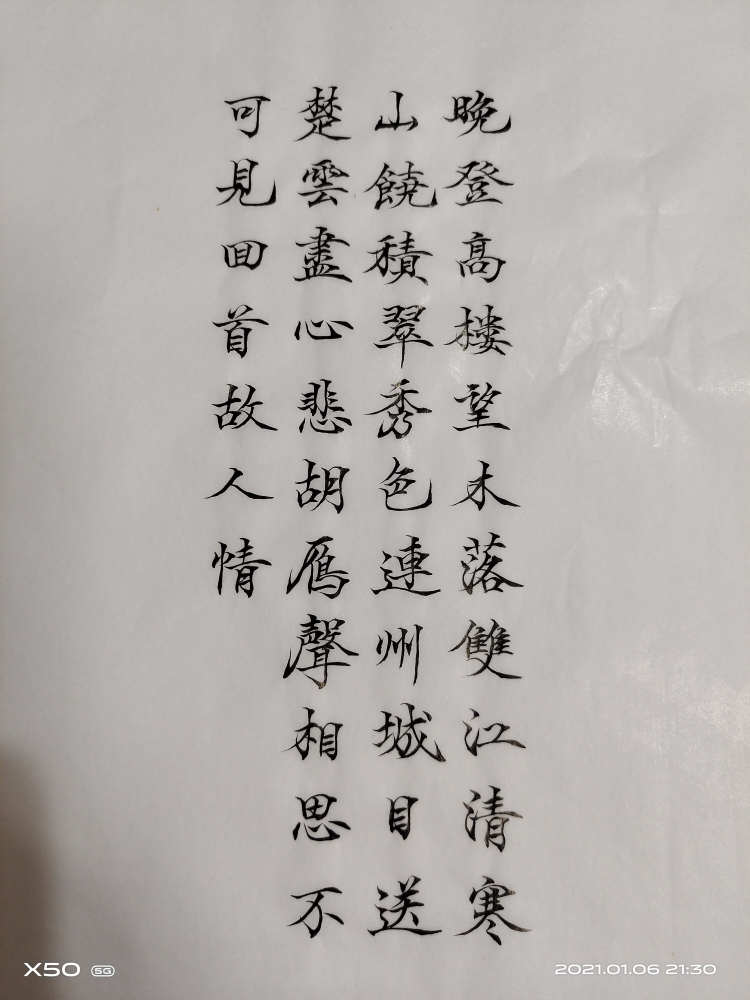 晚登高楼望木落雙江清寒
山饒積翠秀色連州城目送
楚雲盡心悲胡鴈聲相思不
可見回首故人情
X50 5G
2021.01.06 21:30